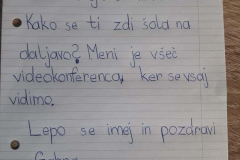 Kako se ti zdi šola na
daljavo? Meni je všeč
videokonferenca, ker se vsaj
vidimo.
Lepo se imej in pozdravi